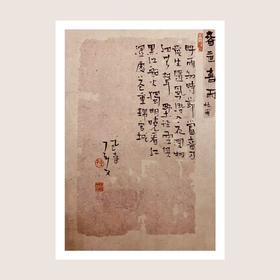 春夜喜雨
杜甫
好雨知時節當春乃
發生隨風潛入夜潤
物細無聲野徑雲俱
黑江船火獨明曉看紅
濕處花重錦官城